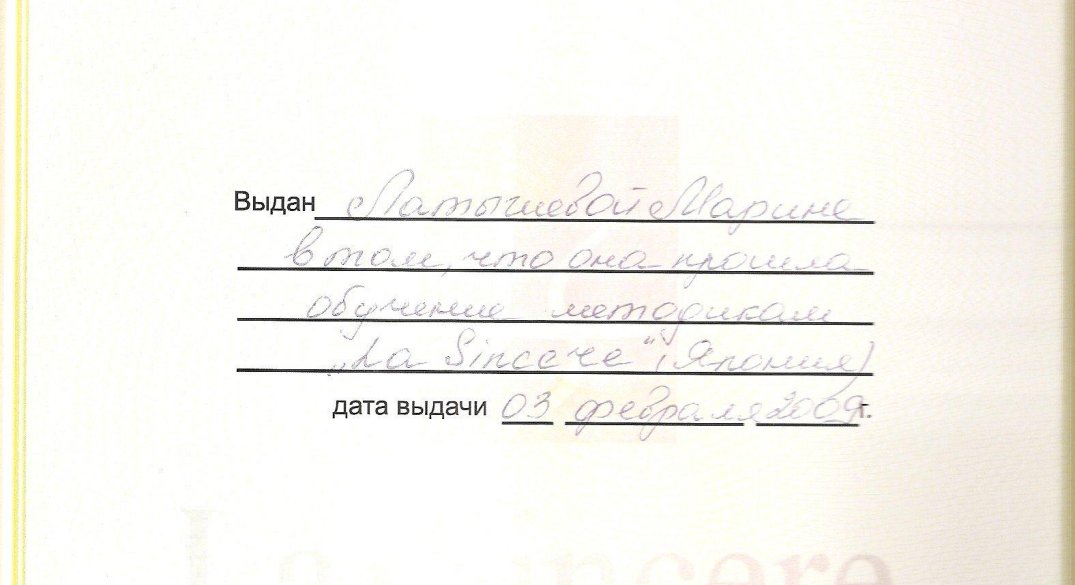 Выдан Латышевой Марине
в том, что она прошла
обучение методикам
„La Sincere" (Япония)
дата выдачи 03 февраля 2009г.
La Sincere